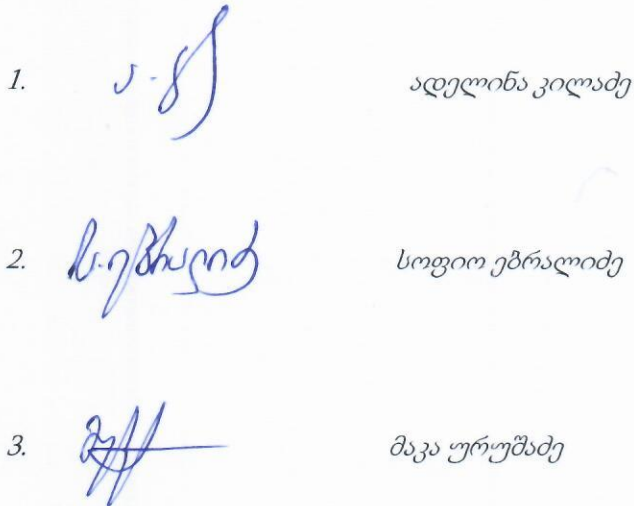 1. ადელინა კილაძე
2. ს. ებრალიძე სოფიო ებრალიძე
3. მაკა ურუშაძე